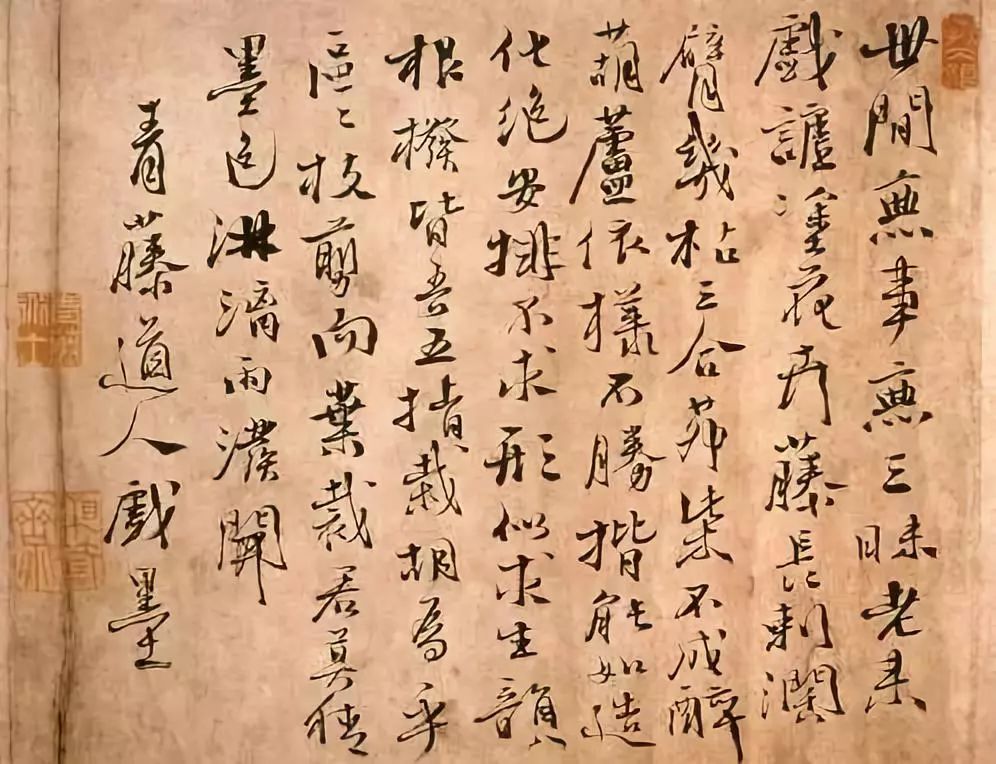 世間無事無三昧老来
戲謔塗花卉藤長刺濶
臂幾枯三合茆柴不成醉
葫蘆依樣不勝揩能如造
化絶安排不求形似求生韻
根撥皆吾五指栽胡為乎
區々枝剪向葉裁君莫猜
墨色淋漓雨潑開
青藤道人戲墨